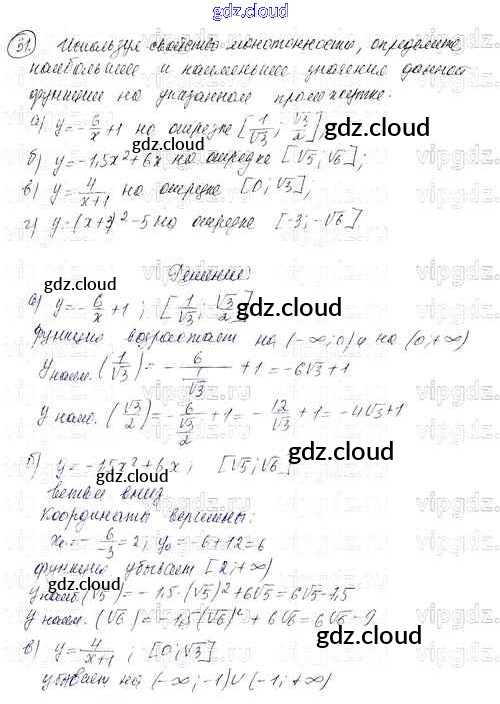 gdz.cloud
31. Используя свойство монотонности, определите
наибольшее и наименьшее значение данной
функции на указанном промежутке.
а) y = -6/x + 1 на отрезке [1/√3; √3/2];
gdz.cloud
б) y = -1,5x² + 6x на отрезке [√5; √6];
в) y = 4/(x+1) на отрезке [0; √3];
г) y = (x+3)² - 5 на отрезке [-3; -√6].
gdz.cloud
Решение:
gdz.cloud
а) y = -6/x + 1; [1/√3; √3/2]
gdz.cloud
функция возрастает на (-∞; 0) и на (0; +∞)
y наим. (1/√3) = -6/(1/√3) + 1 = -6√3 + 1
gdz.cloud
y наиб. (√3/2) = -6/(√3/2) + 1 = -12/√3 + 1 = -4√3 + 1
gdz.cloud
б) y = -1,5x² + 6x; [√5; √6]
gdz.cloud
ветви вниз
Координаты вершины:
x₀ = -6/-3 = 2; y₀ = -6 + 12 = 6
gdz.cloud
функция убывает [2; +∞)
gdz.cloud
y наиб. (√5) = -1,5·(√5)² + 6√5 = 6√5 - 7,5
y наим. (√6) = -1,5(√6)² + 6√6 = 6√6 - 9
gdz.cloud
в) y = 4/(x+1); [0; √3]
gdz.cloud
убывает на (-∞; -1) ∪ (-1; +∞)